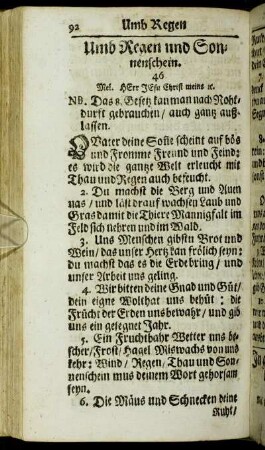 92 Umb Regen
Umb Regen und Son-
nenschein.
46
Mel. HErr JEsu Christ meins ꝛc.
NB. Das 8. Gesetz kan man nach Noht-
durft gebrauchen / auch gantz auß-
lassen.
O Vater deine Soñe scheint auf bös
und Fromme Freund und Feind:
es wird die gantze Welt erleucht mit
Thau und Regen auch befeucht.
2. Du machst die Berg und Auen
nas / und läst drauf wachsen Laub und
Gras damit die Thiere Mannigfalt im
Feld sich nehren und im Wald.
3. Uns Menschen gibstu Brot und
Wein / das unser Hertz kan frölich seyn:
du machst das es die Erde bring / und
unser Arbeit uns geling.
4. Wir bitten deine Gnad und Güt /
dein eigne Wolthat uns behüt : die
Frücht der Erden uns bewahr / und gib
uns ein gesegnet Jahr.
5. Ein Fruchtbahr Wetter uns be-
scher / Frost / Hagel Miswachs von uns
kehr: Wind / Regen / Thau und Son-
nenschein mus deinem Wort gehorsam
seyn.
6. Die Mäus und Schnecken deine
Ruht /